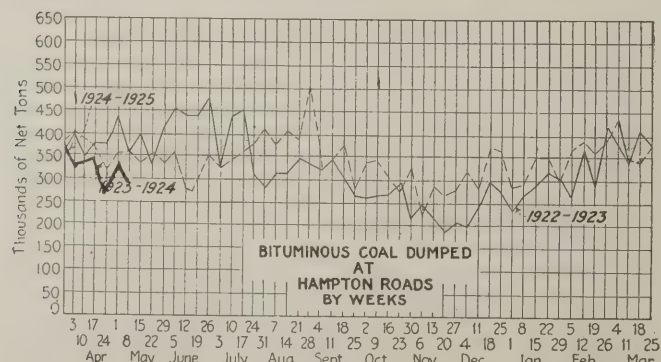 650
600
550
500
450
400
350
300
250
200
150
100
50
0
Thousands of Net Tons
1924-1925
1923-1924
1922-1923
BITUMINOUS COAL DUMPED
AT
HAMPTON ROADS
BY WEEKS
3 17 1 15 29 12 26 10 24 7 21 4 18 2 16 30 13 27 11 25 8 22 5 19 4 18
10 24 8 22 5 19 3 17 31 14 28 11 25 9 23 6 20 4 18 1 15 29 12 26 11 25
Apr May June July Aug Sept Oct Nov Dec Jan Feb Mar